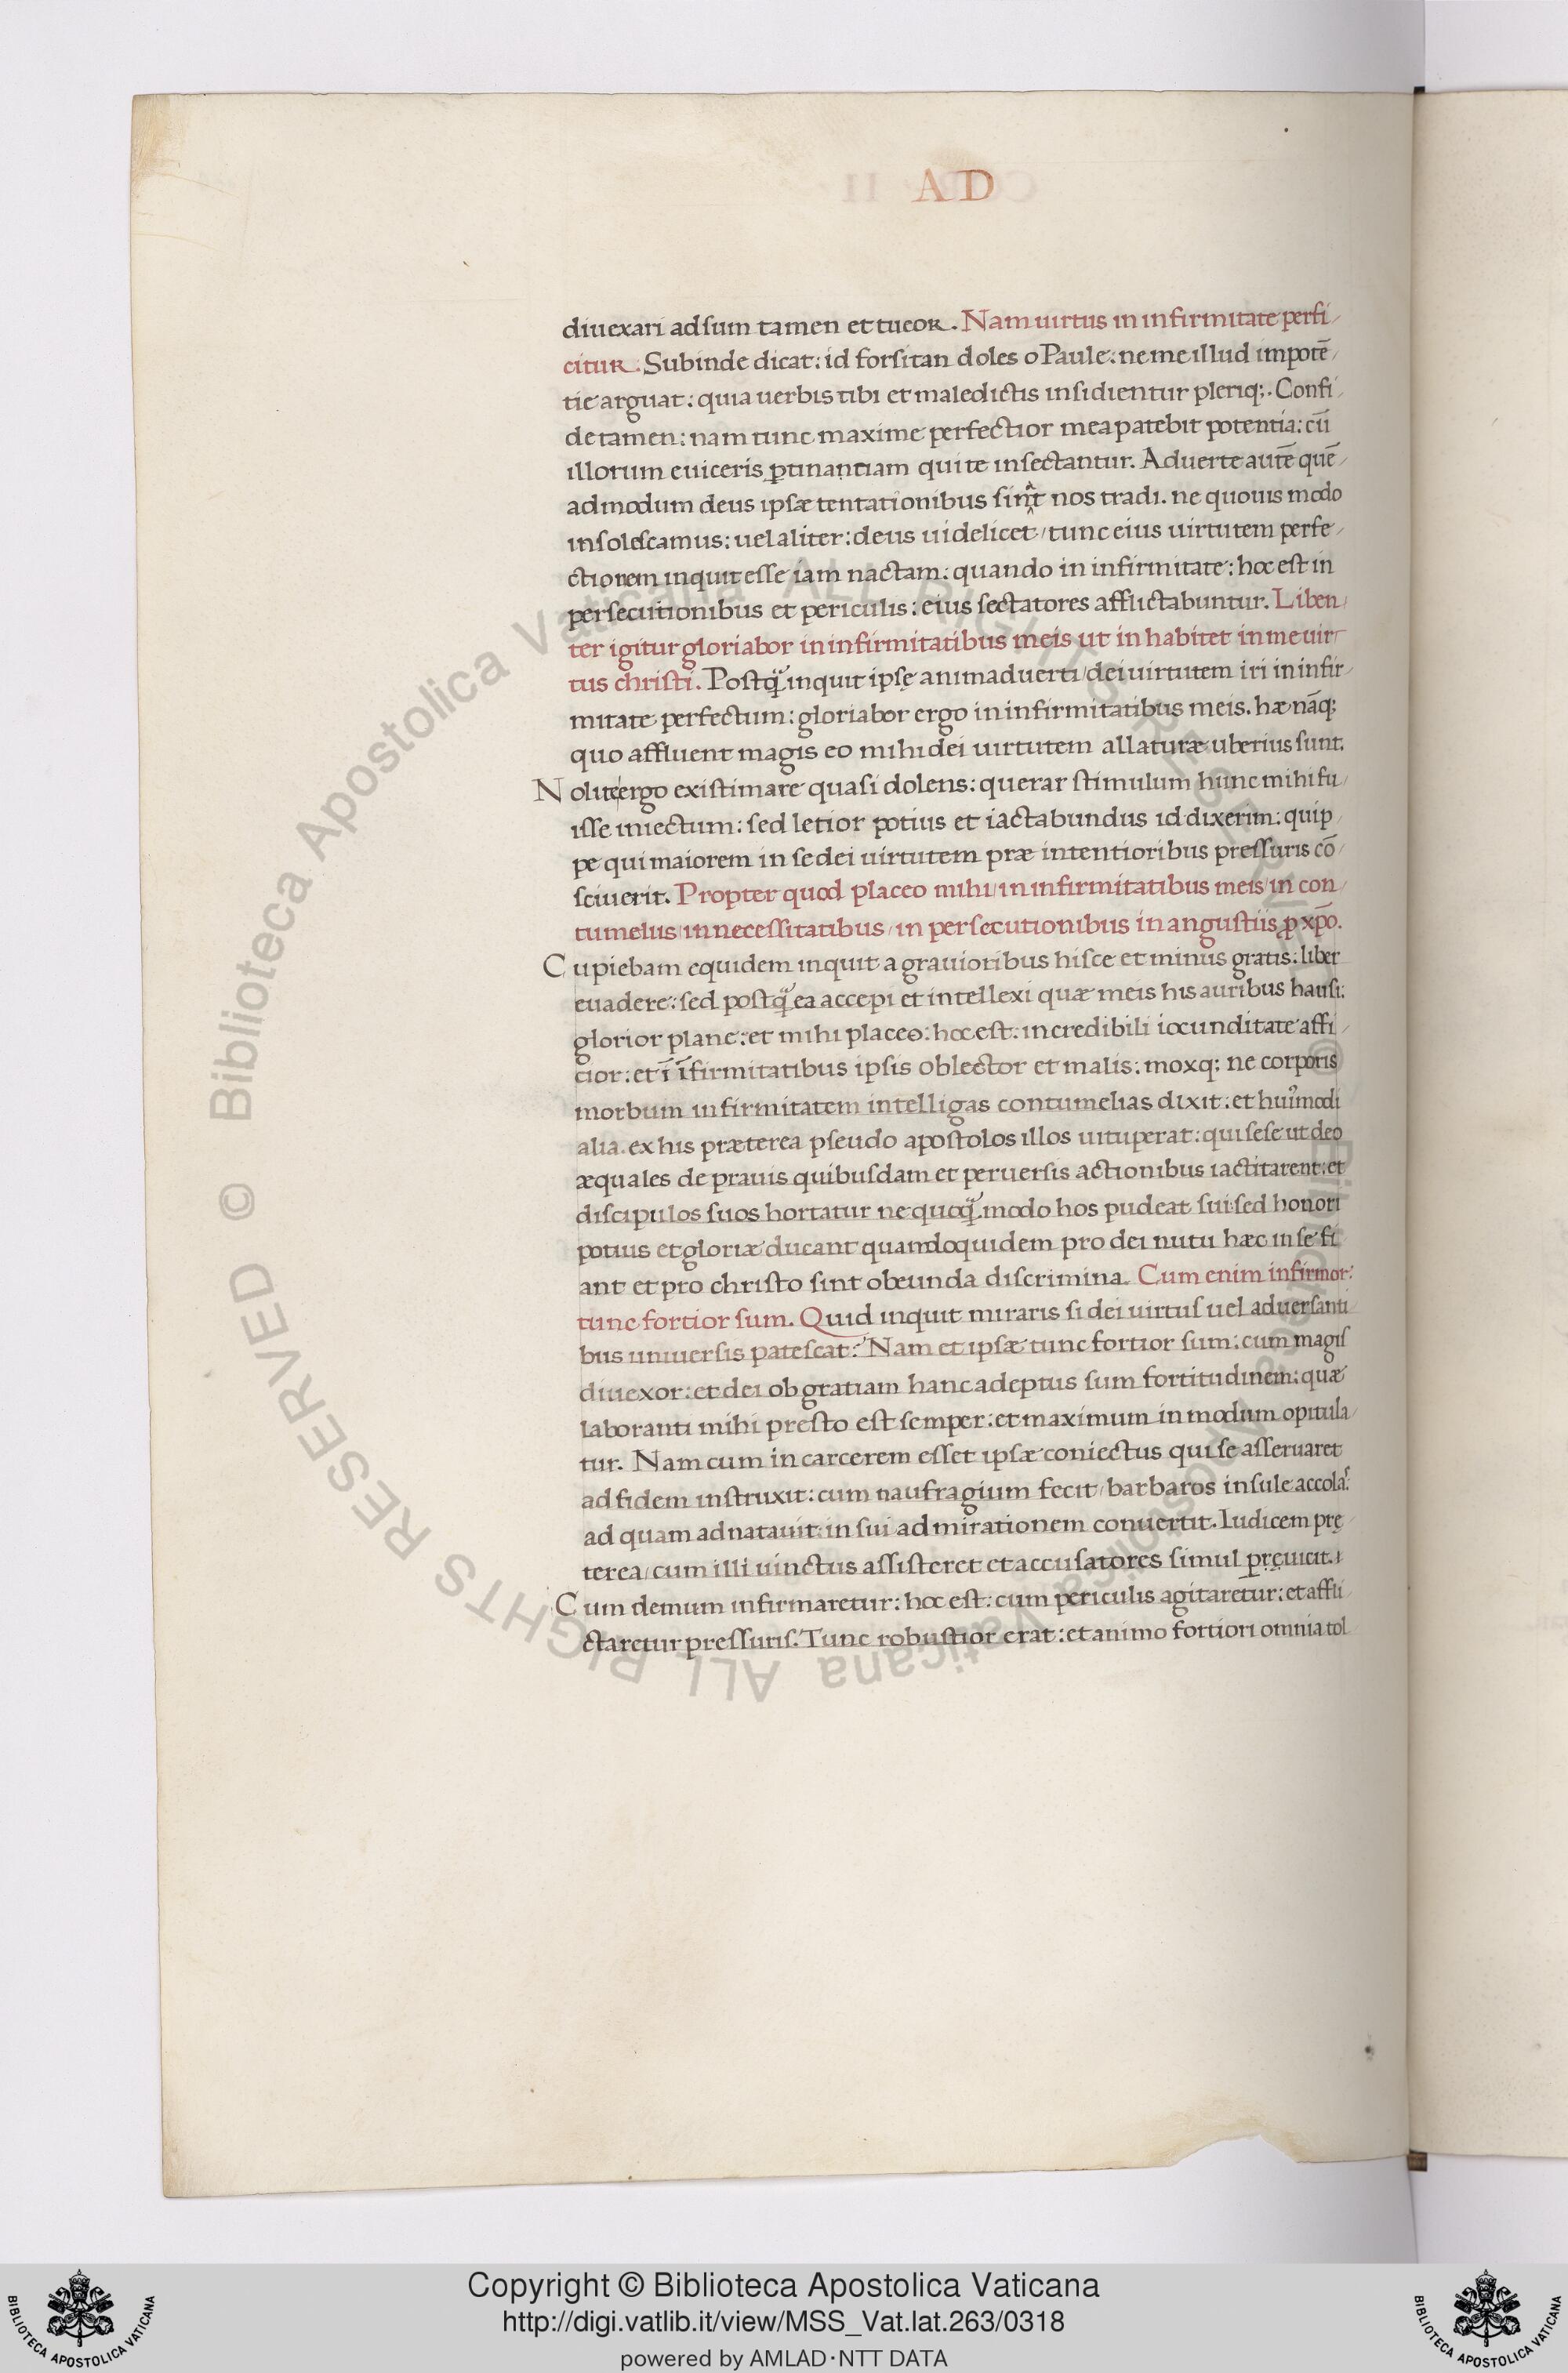 AD
diuexari adsum tamen et tueor. Nam uirtus in infirmitate perfi/
citur. Subinde dicat: id forsitan doles o Paule: ne me illud impotē/
tie arguat: quia uerbis tibi et maledictis insidientur pleriq;. Confi/
de tamen: nam tunc maxime perfectior mea patebit potentia: cū
illorum euiceris ꝑtinantiam qui te insectantur. Aduerte autē quē/
admodum deus ipsæ tentationibus sinit nos tradi. ne quouis modo
insolescamus: uel aliter: deus uidelicet / tunc eius uirtutem perfe/
ctiorem inquit esse iam nactam: quando in infirmitate: hoc est in
persecutionibus et periculis: eius sectatores afflictabuntur. Liben/
ter igitur gloriabor in infirmitatibus meis ut inhabitet in me uir/
tus christi. Postq̃ inquit ipse animaduerti / dei uirtutem iri in infir/
mitate perfectum: gloriabor ergo in infirmitatibus meis. hæ nāq;
quo affluent magis eo mihi dei uirtutem allaturæ uberius sunt.
Nolite ergo existimare quasi dolens: querar stimulum hunc mihi fu/
isse iniectum: sed letior potius et iactabundus id dixerim: quip/
pe qui maiorem in se dei uirtutem præ intentioribus pressuris cō/
sciuerit. Propter quod placeo mihi / in infirmitatibus meis / in con/
tumeliis / in necessitatibus / in persecutionibus in angustiis ꝓ xp̄o.
Cupiebam equidem inquit a grauioribus hisce et minus gratis: liber
euadere: sed postq̃ ea accepi et intellexi quæ meis his auribus hausi:
glorior plane: et mihi placeo: hoc est: incredibili iocunditate affi/
cior: et ī īfirmitatibus ipsis oblector et malis: moxq; ne corporis
morbum infirmitatem intelligas contumelias dixit: et huiꝰmodi
alia. ex his præterea pseudo apostolos illos uituperat: qui sese ut deo
æquales de prauis quibusdam et peruersis actionibus iactitarent: et
discipulos suos hortatur ne quoq̃ modo hos pudeat sui: sed honori
potius et gloriæ ducant quandoquidem pro dei nutu hæc in se fi/
ant et pro christo sint obeunda discrimina. Cum enim infirmor:
tunc fortior sum. Quid inquit miraris si dei uirtus uel aduersanti/
bus uniuersis patescat: Nam et ipsæ tunc fortior sum: cum magis
diuexor: et dei ob gratiam hanc adeptus sum fortitudinem: quæ
laboranti mihi presto est semper: et maximum in modum opitula/
tur. Nam cum in carcerem esset ipsæ coniectus qui se asseruaret
ad fidem instruxit: cum naufragium fecit / barbaros insule accolas:
ad quam adnatauit: in sui admirationem conuertit. Iudicem prę/
terea / cum illi uinctus assisteret et accusatores simul
Cum demum infirmaretur: hoc est: cum periculis agitaretur: et affli/
ctaretur pressuris. Tunc robustior erat: et animo fortiori omnia tol
© Biblioteca Apostolica Vaticana ALL RIGHTS RESERVED © Biblioteca Apostolica Vaticana ALL RIGHTS RESERVED
Copyright © Biblioteca Apostolica Vaticana
http://digi.vatlib.it/view/MSS_Vat.lat.263/0318
powered by AMLAD·NTT DATA
BIBLIOTECA APOSTOLICA VATICANA
BIBLIOTECA APOSTOLICA VATICANA